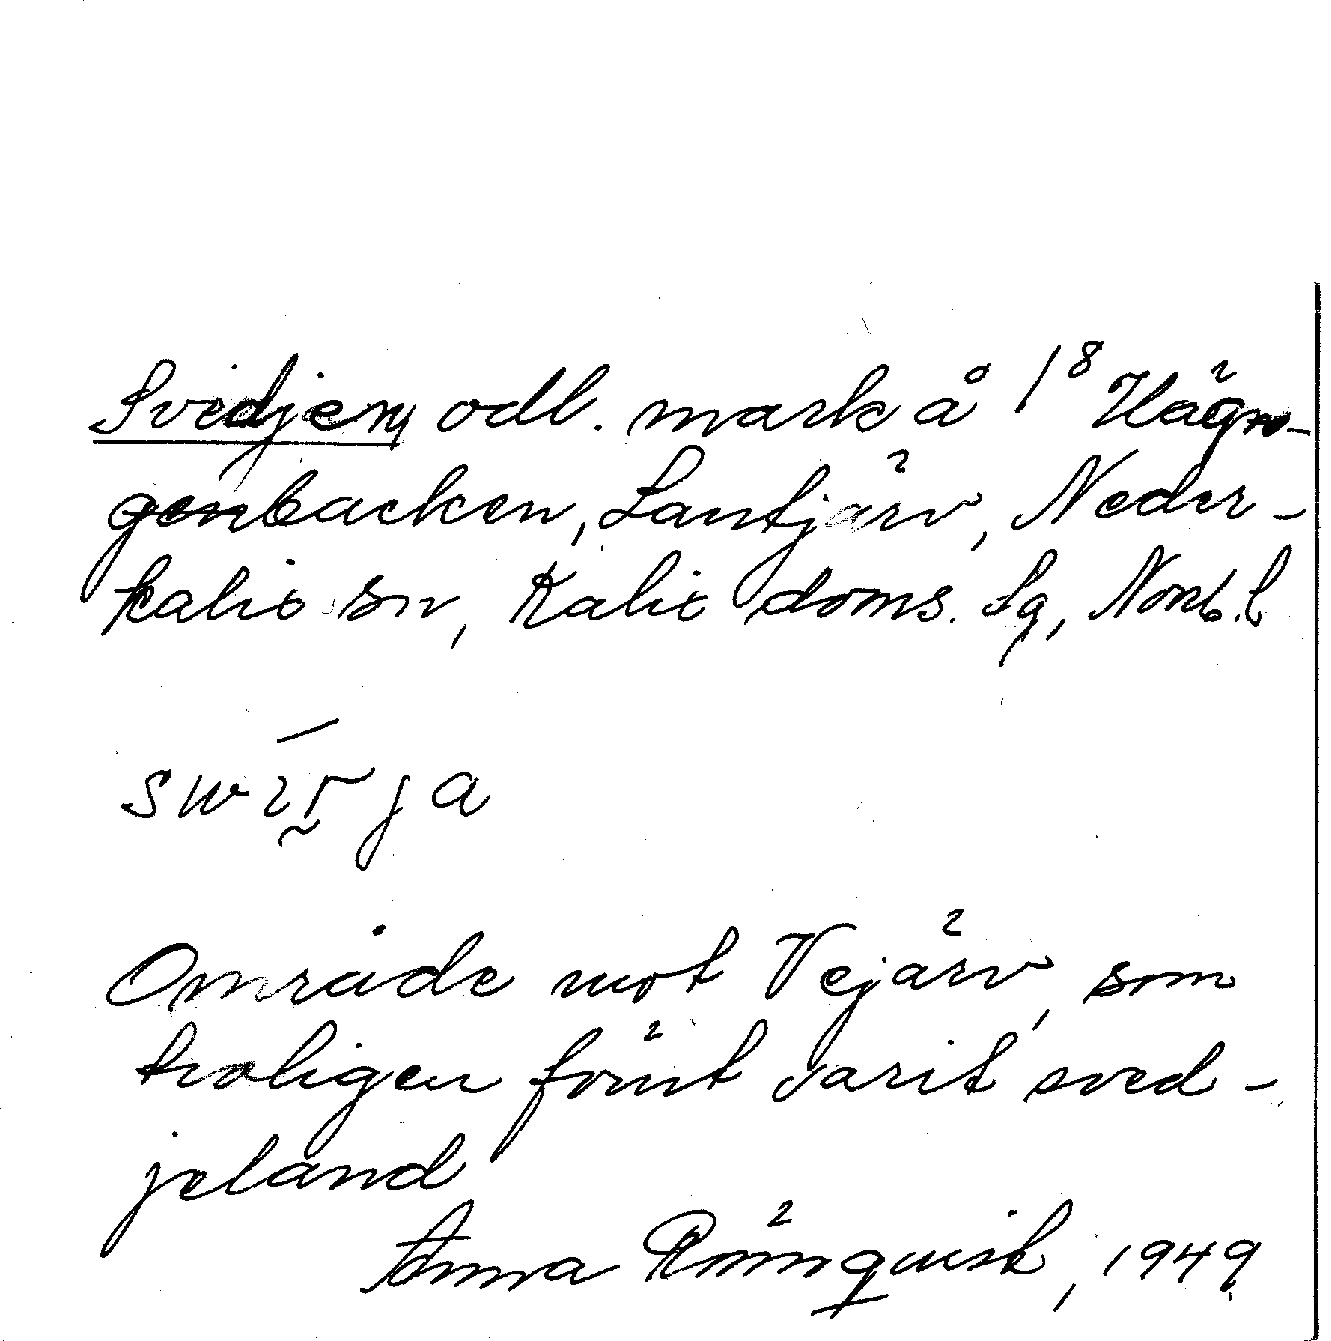 Svedjen, odl. mark å 1⁸ Hägn-
genbacken, Lantjärv, Neder-
kalix sn, Kalix doms. sg, Norrb. l
Område mot Vejärv, som
troligen förut varit sved-
jeland
Anna Rönnquist, 1949